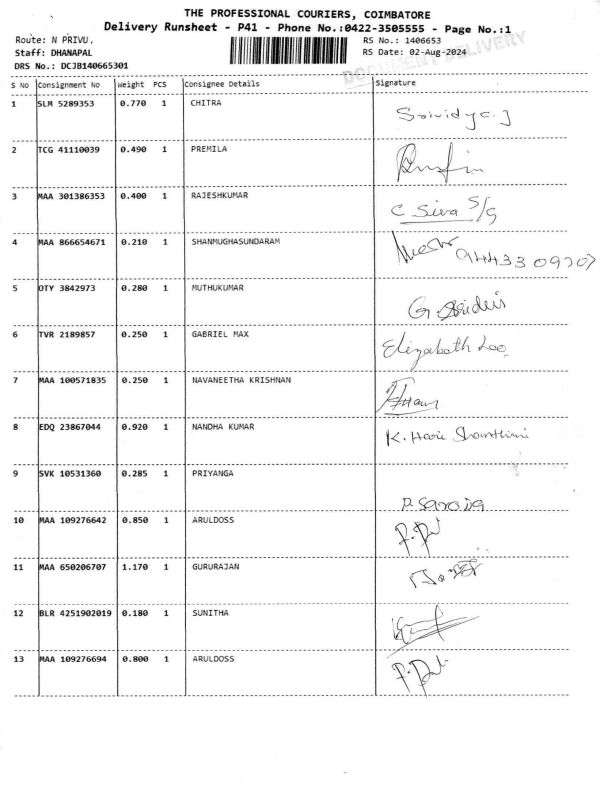 THE PROFESSIONAL COURIERS, COIMBATORE
Delivery Runsheet - P41 - Phone No.:0422-3505555 - Page No.:1
Route: N PRIVU,
RS No.: 1406653
Staff: DHANAPAL
RS Date: 02-Aug-2024
DRS No.: DCJB140665301
DOCUMENT DELIVERY
S No Consignment No Weight PCS Consignee Details Signature
1 SLM 5289353 0.770 1 CHITRA Srividya.J
2 TCG 41110039 0.490 1 PREMILA
3 MAA 301386353 0.400 1 RAJESHKUMAR C Siva S/G
4 MAA 866654671 0.210 1 SHANMUGHASUNDARAM
5 OTY 3842973 0.280 1 MUTHUKUMAR
6 TVR 2189857 0.250 1 GABRIEL MAX Elizabath Leo
7 MAA 100571835 0.250 1 NAVANEETHA KRISHNAN
8 EDQ 23867044 0.920 1 NANDHA KUMAR K. Hari Shanthini
9 SVK 10531360 0.285 1 PRIYANGA P. Saroja
10 MAA 109276642 0.850 1 ARULDOSS
11 MAA 650206707 1.170 1 GURURAJAN
12 BLR 4251902019 0.180 1 SUNITHA
13 MAA 109276694 0.800 1 ARULDOSS